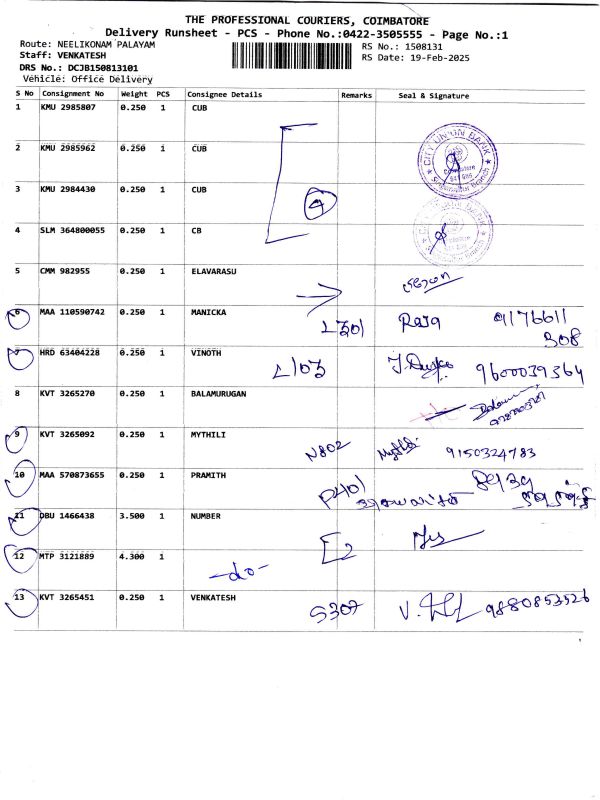 THE PROFESSIONAL COURIERS, COIMBATORE
Delivery Runsheet - PCS - Phone No.:0422-3505555 - Page No.:1
Route: NEELIKONAM PALAYAM RS No.: 1508131
Staff: VENKATESH RS Date: 19-Feb-2025
DRS No.: DCJB150813101
Vehicle: Office Delivery
S No Consignment No Weight PCS Consignee Details Remarks Seal & Signature
1 KMU 2985807 0.250 1 CUB
2 KMU 2985962 0.250 1 CUB
CITY UNION BANK
Coimbatore
3 KMU 2984430 0.250 1 CUB
4
4 SLM 364800055 0.250 1 CB
5 CMM 982955 0.250 1 ELAVARASU
6 MAA 110590742 0.250 1 MANICKA L301 Raja 9176611
308
7 HRD 63404228 0.250 1 VINOTH L103 9600039364
8 KVT 3265270 0.250 1 BALAMURUGAN
9 KVT 3265092 0.250 1 MYTHILI N802 Mythili 9150324783
10 MAA 570873655 0.250 1 PRAMITH P401
11 DBU 1466438 3.500 1 NUMBER
12 MTP 3121889 4.300 1 -do-
13 KVT 3265451 0.250 1 VENKATESH S307 9880853526